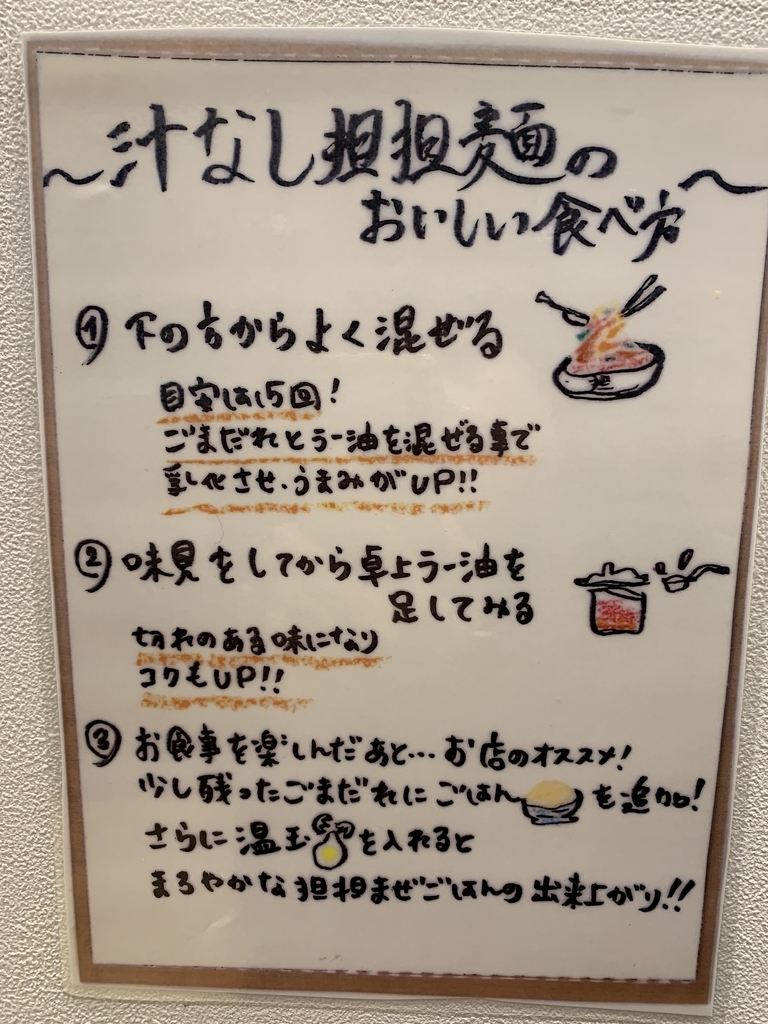 〜汁なし担担麺の〜
おいしい食べ方
① 下の方からよく混ぜる
目安は15回!
ごまだれとラー油を混ぜる事で
乳化させ、うまみがUP!!
② 味見をしてから卓上ラー油を
足してみる
切れのある味になり
コクもUP!!
③ お食事を楽しんだあと…お店のオススメ!
少し残ったごまだれにごはんを追加!
さらに温玉を入れると
まろやかな担担まぜごはんの出来上がり!!